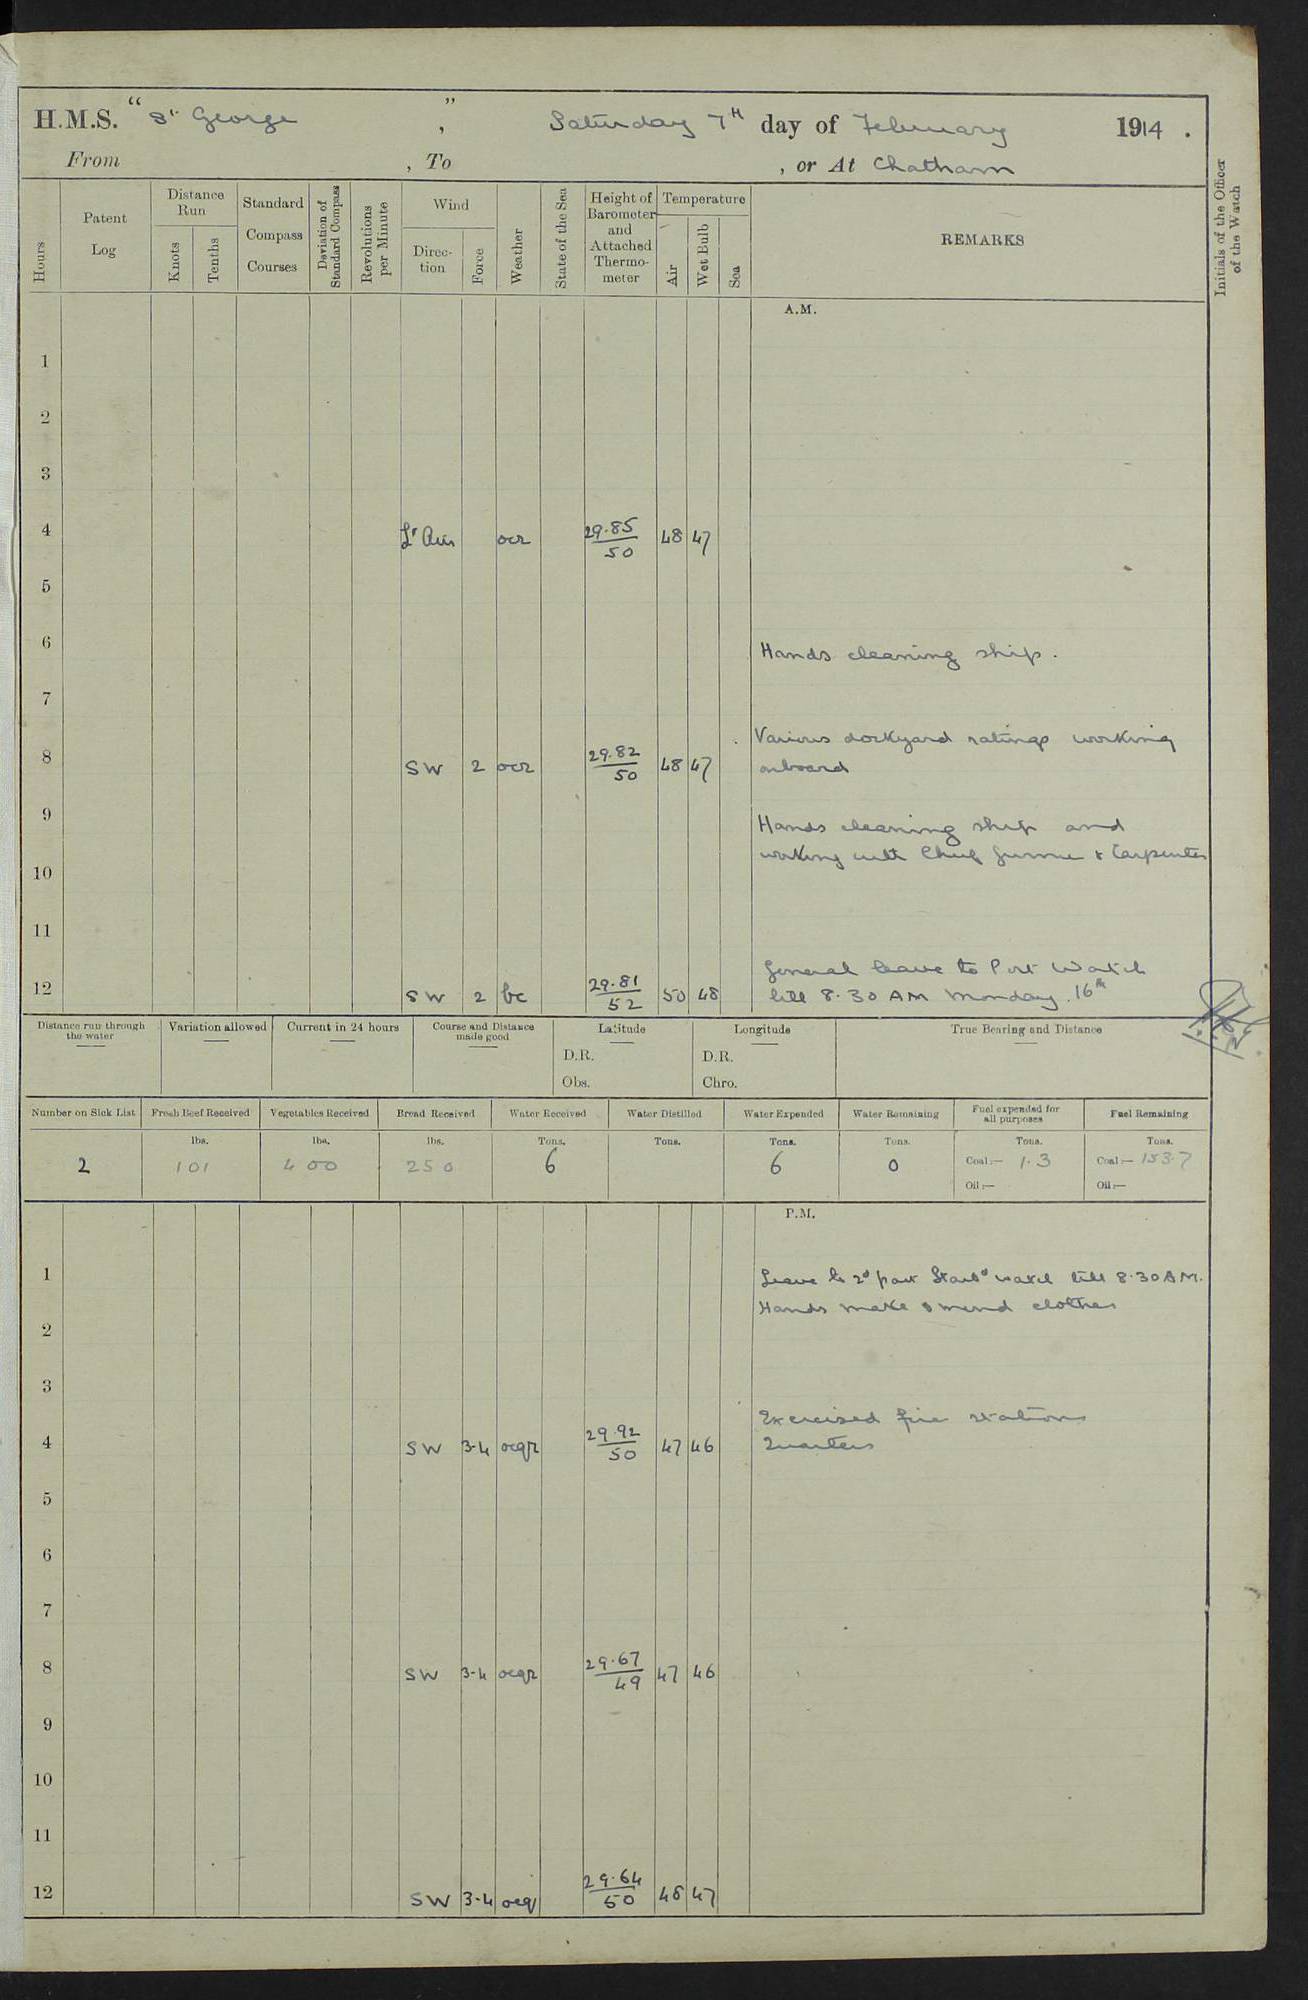 H.M.S. "St George", Saturday 7th day of February 1914.
From , To , or At Chatham
Hours
Patent Log
Distance Run
Knots
Tenths
Standard Compass Courses
Deviation of Standard Compass
Revolutions per Minute
Wind
Direc-tion
Force
Weather
State of the Sea
Height of Barometer and Attached Thermo-meter
Temperature
Air
Wet Bulb
Sea
REMARKS
Initials of the Officer of the Watch
A.M.
1
2
3
4 Lt Airs ocr 29.85/50 48 47
5
6 Hands cleaning ship.
7
Various dockyard ratings working
8 SW 2 ocr 29.82/50 48 47 onboard
9 Hands cleaning ship and
working with Chief Gunner & Carpenter
10
11
General leave to Port Watch
12 SW 2 bc 29.81/52 50 48 till 8.30 AM Monday. 16th
Distance run through the water
Variation allowed
Current in 24 hours
Course and Distance made good
Latitude
D.R.
Obs.
Longitude
D.R.
Chro.
True Bearing and Distance
Number on Sick List
Fresh Beef Received
Vegetables Received
Bread Received
Water Received
Water Distilled
Water Expended
Water Remaining
Fuel expended for all purposes
Fuel Remaining
lbs. lbs. lbs. Tons. Tons. Tons. Tons. Tons. Tons.
2 101 400 250 6 6 0 Coal:— 1.3 Coal:— 153.7
Oil:— Oil:—
P.M.
1 Leave to 2d part Starbd watch till 8.30 AM.
Hands make & mend clothes
2
3
Exercised fire stations
4 SW 3-4 ocqr 29.92/50 47 46 Quarters
5
6
7
8 SW 3-4 ocqr 29.67/49 47 46
9
10
11
12 SW 3-4 ocq 29.64/50 48 47